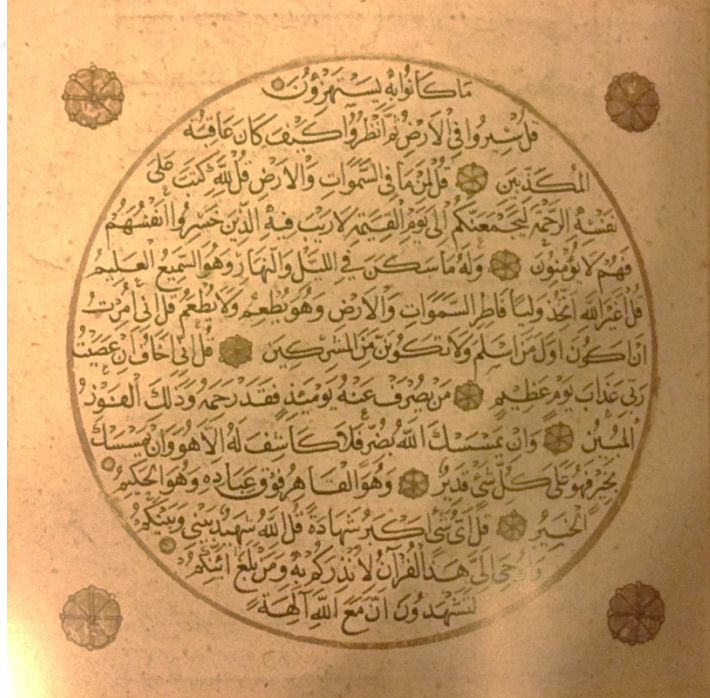 ما كانوا به يستهزؤن
قل سيروا في الارض ثم انظروا كيف كان عاقبة
المكذبين قل لمن ما في السموات والارض قل لله كتب على
نفسه الرحمة ليجمعنكم الى يوم القيمة لا ريب فيه الذين خسروا انفسهم
فهم لا يؤمنون وله ما سكن في الليل والنهار وهو السميع العليم
قل اغير الله اتخذ وليا فاطر السموات والارض وهو يطعم ولا يطعم قل اني امرت
ان اكون اول من اسلم ولا تكونن من المشركين قل اني اخاف ان عصيت
ربي عذاب يوم عظيم من يصرف عنه يومئذ فقد رحمه وذلك الفوز
المبين وان يمسسك الله بضر فلا كاشف له الا هو وان يمسسك
بخير فهو على كل شئ قدير وهو القاهر فوق عباده وهو الحكيم
الخبير قل اي شئ اكبر شهادة قل الله شهيد بيني وبينكم
واوحي الي هذا القرآن لانذركم به ومن بلغ ائنكم
لتشهدون ان مع الله آلهة